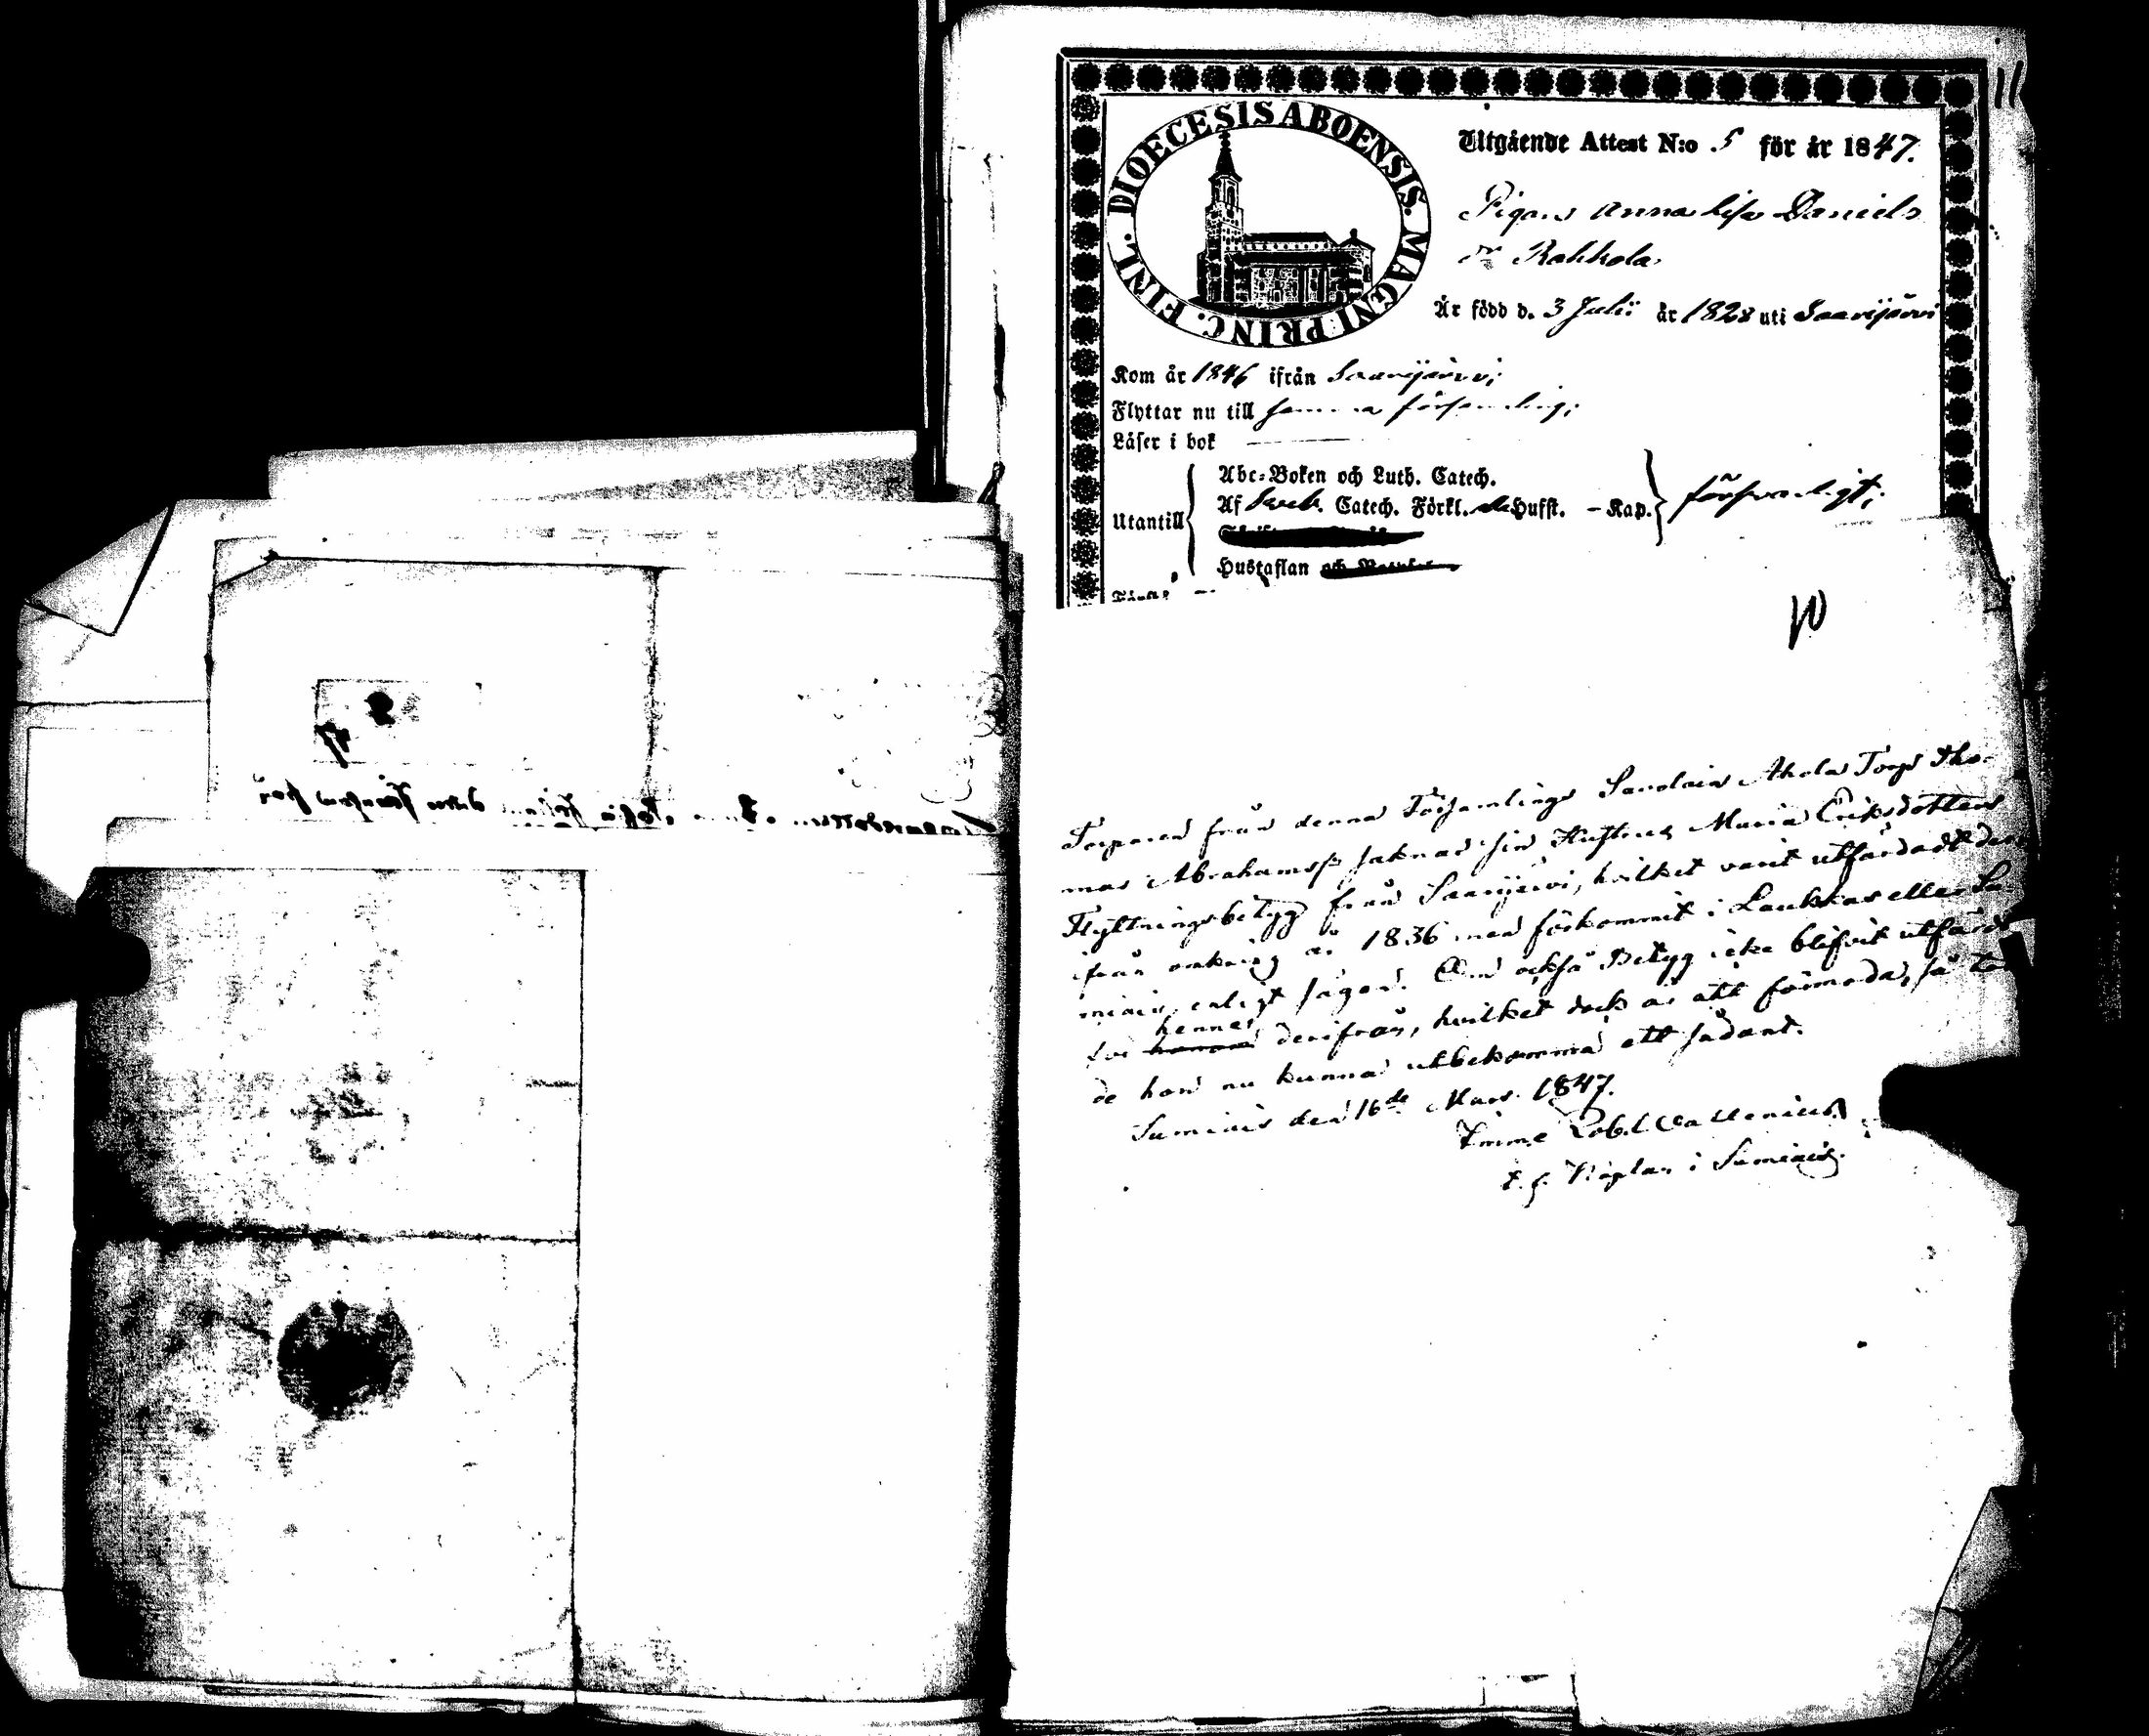 11
DIOECESIS ABOENSIS. MAGNI PRINC. FINL.
Utgående Attest N:o 5 för år 1847.
Pigan Anna Lisa Daniels
dr Rahkola
Är född d. 3 Julii år 1828 uti Saarijärvi
Kom år 1846 ifrån Saarijärvi;
Flyttar nu till samma församling;
Läser i bok —
Abc-Boken och Luth. Catech.
Utantill Af Catech. Förkl. Hufst. - Kap. försvarligt;
Hustaflan och
10
Torparen från denna Församlings Savolais Ahola Torp Tho-
mas Abrahamss. saknar sin Hustrus Maria Eriksdotters
Flyttningsbetyg från Saarijervi, hvilket varit utfärdadt der-
ifrån omkring år 1836 men förkommit i Laukkas eller Su-
miais, enligt sägen. Om också Betyg icke blifvit utfärdt
hennes
för honom derifrån, hvilket dock är att förmoda, så tor-
de han nu kunna utbekomma ett sådant.
Sumiais den 16de Mars 1847.
t. f. Kaplan i Sumiais.